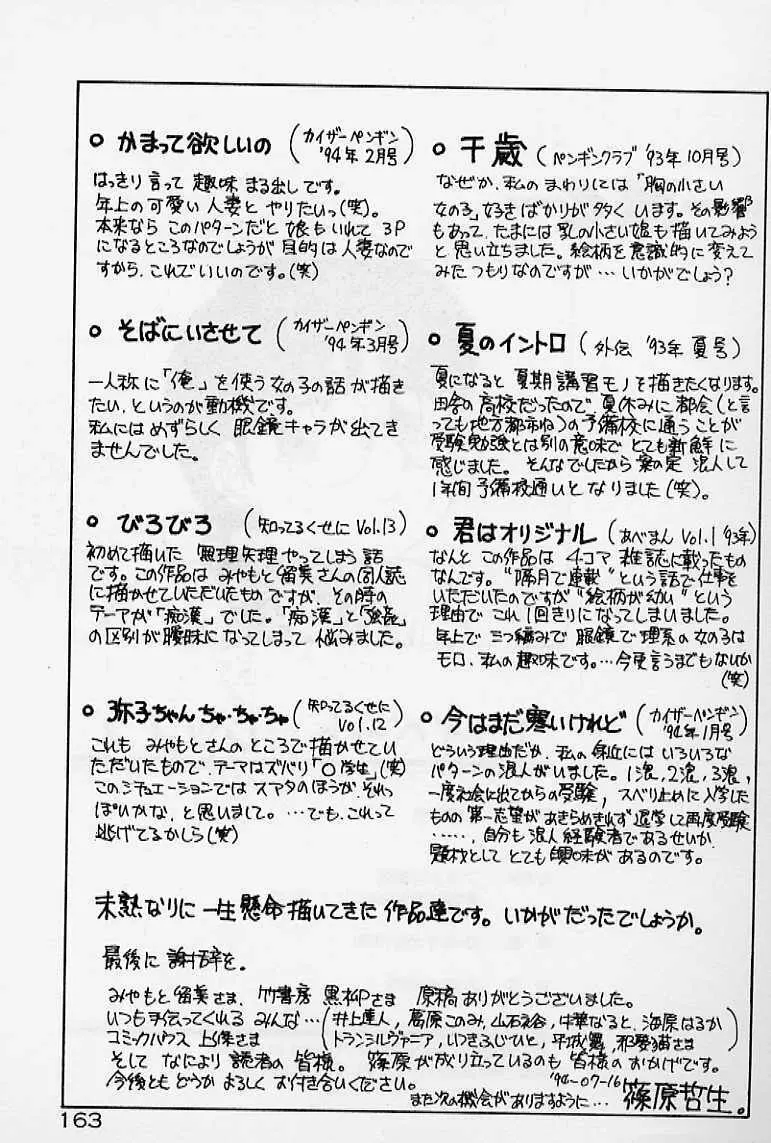 ○ 千歳 (ペンギンクラブ '93年10月号)
なぜか、私のまわりには「胸の小さい
女の子」好きばかりが多くいます。その影響
もあって、たまには乳の小さい娘も描いてみよう
と思い立ちました。絵柄を意識的に変えて
みたつもりなのですが…いかがでしょう?
○ 夏のイントロ (外伝 '93年 夏号)
夏になると 夏期講習モノを描きたくなります。
田舎の高校だったので 夏休みに都会(と言
っても地方都市ねっ)の予備校に通うことが
受験勉強とは別の意味で とても新鮮に
感じました。そんなでしたから 案の定 浪人して
1年間 予備校通いと なりました(笑)。
○ 君はオリジナル (あべまん Vol.1 93年)
なんと この作品は 4コマ 雑誌に載ったもの
なんです。"隔月で連載"という話で仕事を
いただいたのですが"絵柄が幼い"という
理由で これ1回きりになってしまいました。
年上で 三つ編みで 眼鏡で 理系の女の子は
モロ、私の趣味です。…今更言うまでもないか
(笑)
○ 今はまだ寒いけれど (カイザーペンギン '94年1月号)
どういう理由だか、私の身近にはいろいろな
パターンの浪人がいました。1浪、2浪、3浪、
一度社会に出てからの受験、スベリ止めに入学した
ものの 第一志望があきらめきれず 退学して再度受験
……、自分も浪人経験者であるせいか
題材として とても 興味が あるのです。
○ かまって欲しいの (カイザーペンギン '94年2月号)
はっきり言って 趣味 まる出しです。
年上の可愛い 人妻と やりたいっ(笑)。
○ そばにいさせて (カイザーペンギン '94年3月号)
一人称に「俺」を使う女の子の話が描き
たい、というのが動機です。
私にはめずらしく 眼鏡キャラが出てき
ませんでした。
○ びろびろ (知ってるくせに Vol.13)
初めて描いた 無理矢理やってしまう話
です。この作品は みやもと留美さんの同人誌
に描かせていただいたものですが、その時の
テーマが「痴漢」でした。「痴漢」と「強姦」
の区別が曖昧になってしまって 悩みました。
未熟なりに 一生懸命描いてきた 作品達です。いかがだったでしょうか。
最後に 謝辞を。
みやもと留美さま、竹書房 黒柳Pさま 原稿ありがとうございました。
いつも手伝ってくれる みんな…
コミックハウス 上條さま
そして なにより 読者の皆様。篠原が成り立っているのも 皆様のおかげです。
今後とも どうか よろしく お付き合いください。
'94-07-16
また次の機会がありますように… 篠原哲生。
163